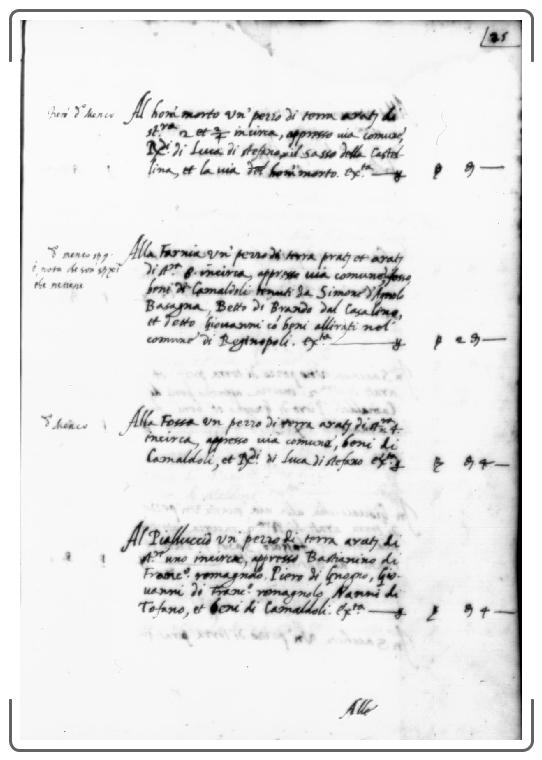 25
Piero d.o Menco
Al hom morto un' pezzo di terra arat.j di
st.ra 2 et 2/4 incirca, appresso via comune,
Rdi di Luca di stefano, il sasso della Castel
lina, et la via del hom morto. ex.ta
Alla Farnia un' pezzo di terra prat.j et arat.j
di st.ra 8 incirca, appresso via comune, fosso
beni di Camaldoli tenuti da Simone d'Agnolo
Basagna, Betto di Brando dal Casalino,
et detto Giovanni cō beni allirati nel
comune di Reginopoli. ex.ta 2
d.o Menco
Alla Fossa un pezzo di terra arat.j di st.ra 4
incirca, appresso via comune, beni di
Camaldoli, et Rdi di Luca di stefano ex.ta
Al Pialluccio un' pezzo di terra arat.j di
st.ra uno incirca, appresso Bastianino di
Franc.o romagnolo, Piero di Gnogno, Gio
vanni di Franc.o romagnolo, Nanni di
Tofano, et beni di Camaldoli. ex.ta
Alla